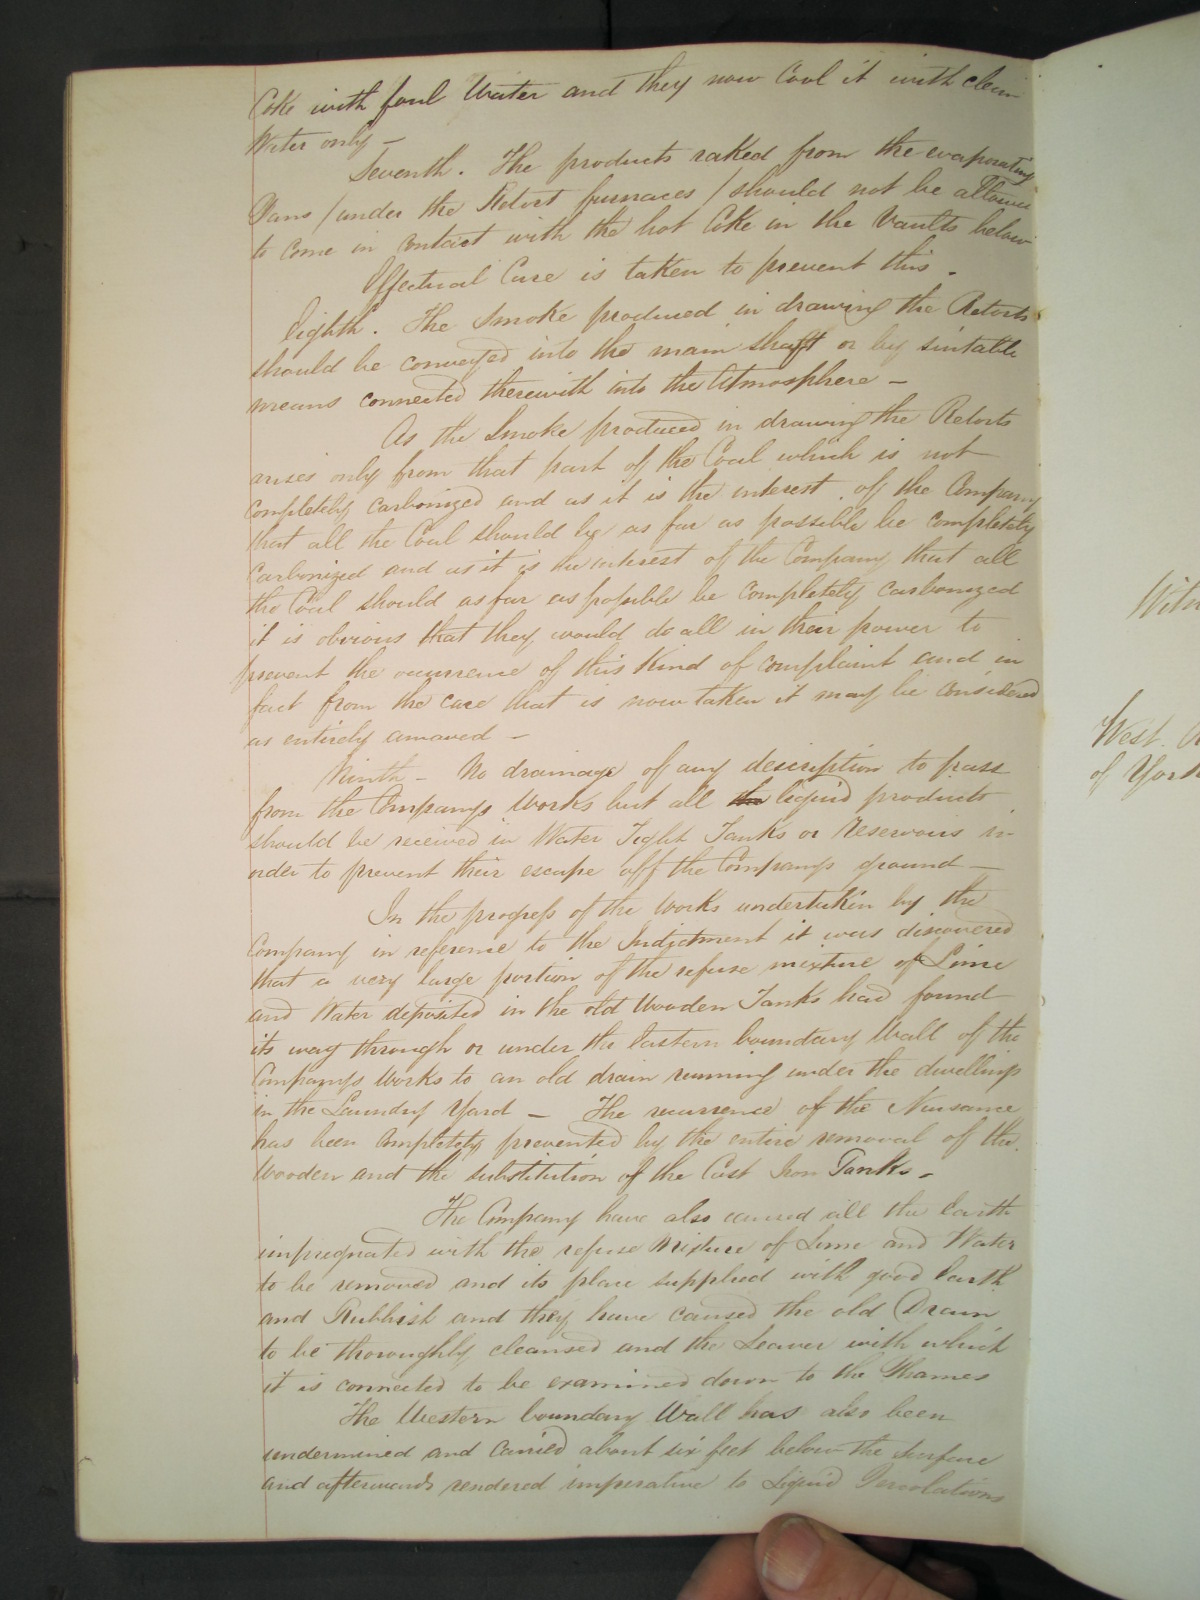 Coke with foul Water and they now Cool it with clean
Water only —
Seventh. The products raked from the evaporating
Pans / under the Retort furnaces / should not be allowed
to come in contact with the hot Coke in the Vaults below
Effectual Care is taken to prevent this.
Eighth. The Smoke produced in drawing the Retorts
should be conveyed into the main shaft or by suitable
means connected therewith into the Atmosphere —
As the Smoke produced in drawing the Retorts
arises only from that part of the Coal which is not
completely carbonized and as it is the interest of the Company
that all the Coal should be as far as possible be completely
Carbonized and as it is the interest of the Company that all
the Coal should as far as possible be completely carbonized
it is obvious that they would do all in their power to
prevent the occurrence of this Kind of complaint and in
fact from the care that is now taken it may be considered
as entirely
Ninth — No drainage of any description to pass
from the Companys Works but all the liquid products
should be received in Water Tight Tanks or Reservoirs in
order to prevent their escape off the Companys ground —
In the progress of the Works undertaken by the
Company in reference to the Indictment it was discovered
that a very large portion of the refuse mixture of Lime
and Water deposited in the old Wooden Tanks had found
its way through or under the Eastern boundary Wall of the
Companys Works to an old drain running under the dwellings
in the Laundry Yard — The recurrence of the Nuisance
has been Completely prevented by the entire removal of the
Wooden and the substitution of the Cast Iron Tanks —
The Company have also caused all the Earth
impregnated with the refuse Mixture of Lime and Water
to be removed and its place supplied with good Earth
and Rubbish and they have caused the old Drain
to be thoroughly cleansed and the Seawer with which
it is connected to be examined down to the Thames
The Western boundary Wall has also been
undermined and Carried about six feet below the surface
and afterwards rendered imperative to Liquid Percolations
Witn
West.
of York